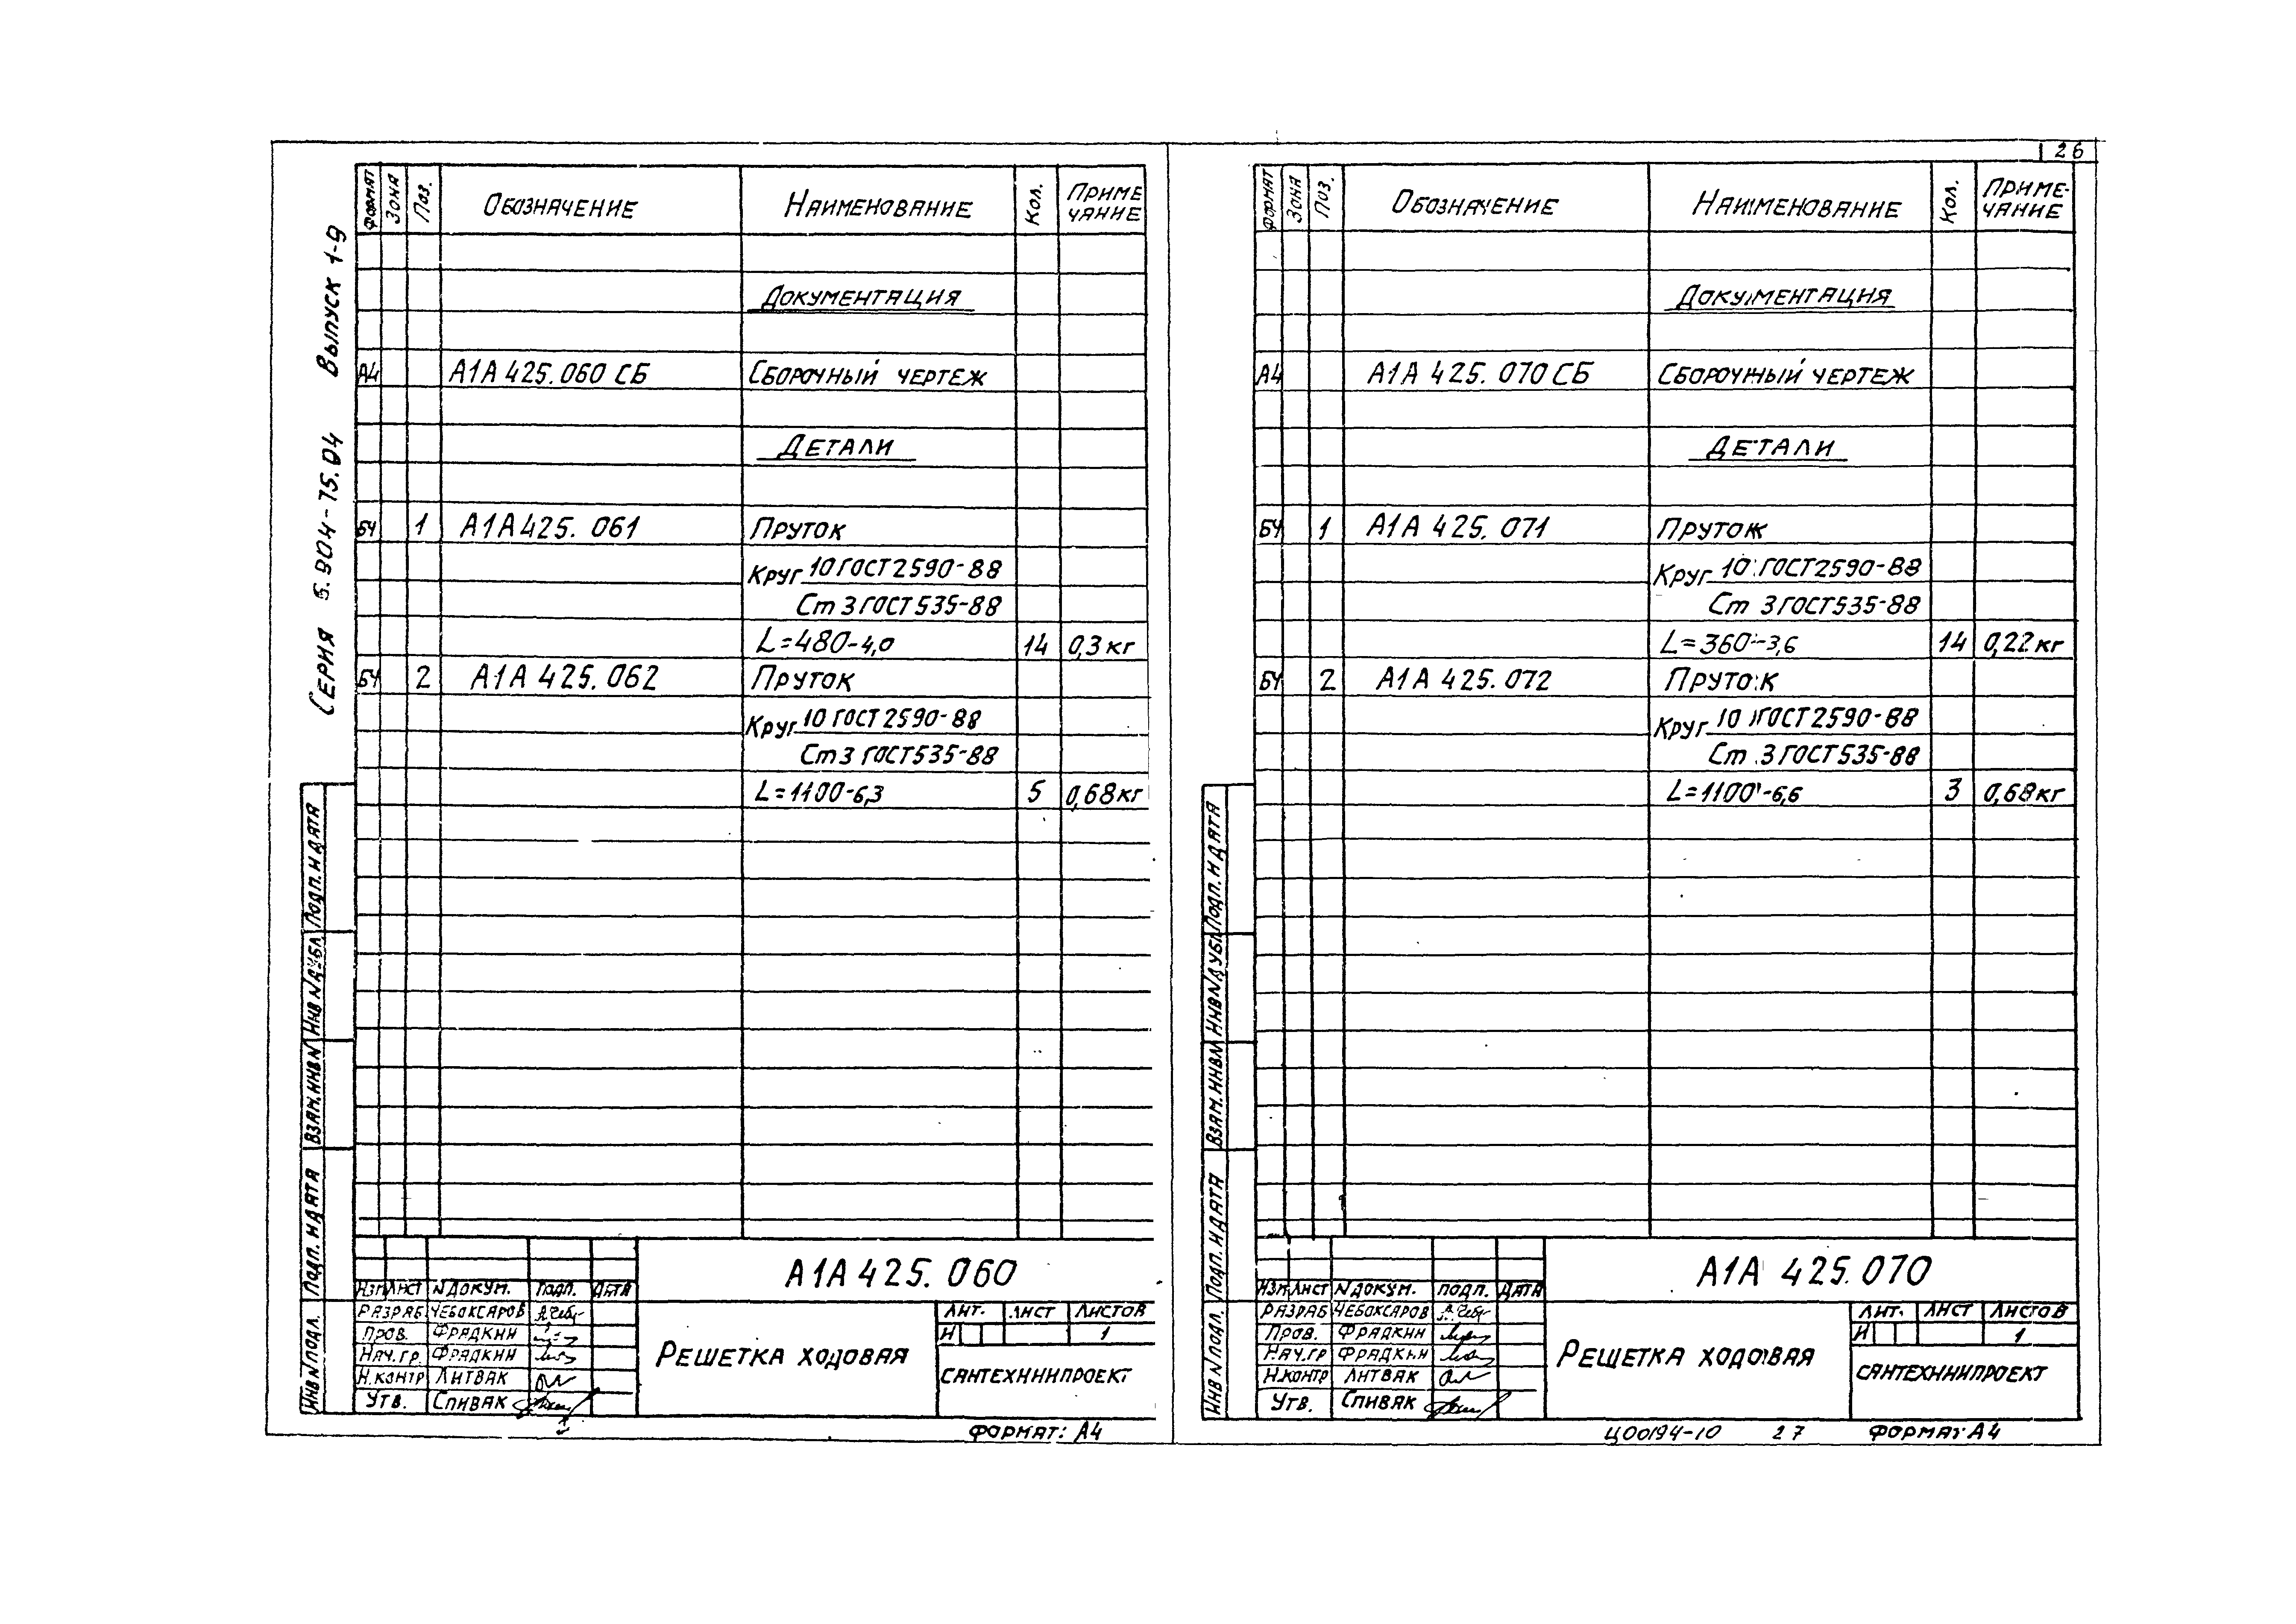 26
Серия 5.904-75.04 Выпуск 1-9
Формат Зона Поз. Обозначение Наименование Кол. Примечание
Документация
А4 А1А 425.060 СБ Сборочный чертеж
Детали
БЧ 1 А1А 425.061 Пруток
Круг 10 ГОСТ 2590-88
Ст 3 ГОСТ 535-88
L=480-4,0 14 0,3 кг
БЧ 2 А1А 425.062 Пруток
Круг 10 ГОСТ 2590-88
Ст 3 ГОСТ 535-88
L=1100-6,3 5 0,68 кг
Подп. и дата
Инв N дубл
Взам. инв N
Подп. и дата
Инв N подл.
Изм Лист N докум. Подп. Дата
Разраб Чебоксаров
Пров. Фрадкин
Нач. гр. Фрадкин
Н.контр Литвак
Утв. Спивак
А1А 425.060
Решетка ходовая
Лит. Лист Листов
И 1
Сантехниипроект
Формат: А4
Формат Зона Поз. Обозначение Наименование Кол. Приме-чание
Документация
А4 А1А 425.070 СБ Сборочный чертеж
Детали
БЧ 1 А1А 425.071 Пруток
Круг 10 ГОСТ 2590-88
Ст 3 ГОСТ 535-88
L=360-3,6 14 0,22 кг
БЧ 2 А1А 425.072 Пруток
Круг 10 ГОСТ 2590-88
Ст 3 ГОСТ 535-88
L=1100-6,6 3 0,68 кг
Подп. и дата
Инв N дубл
Взам. инв N
Подп. и дата
Инв N подл.
Изм Лист N докум. Подп. Дата
Разраб Чебоксаров
Пров. Фрадкин
Нач. гр Фрадкин
Н.контр Литвак
Утв. Спивак
А1А 425.070
Решетка ходовая
Лит. Лист Листов
И 1
Сантехниипроект
Ц00194-10 27 Формат А4